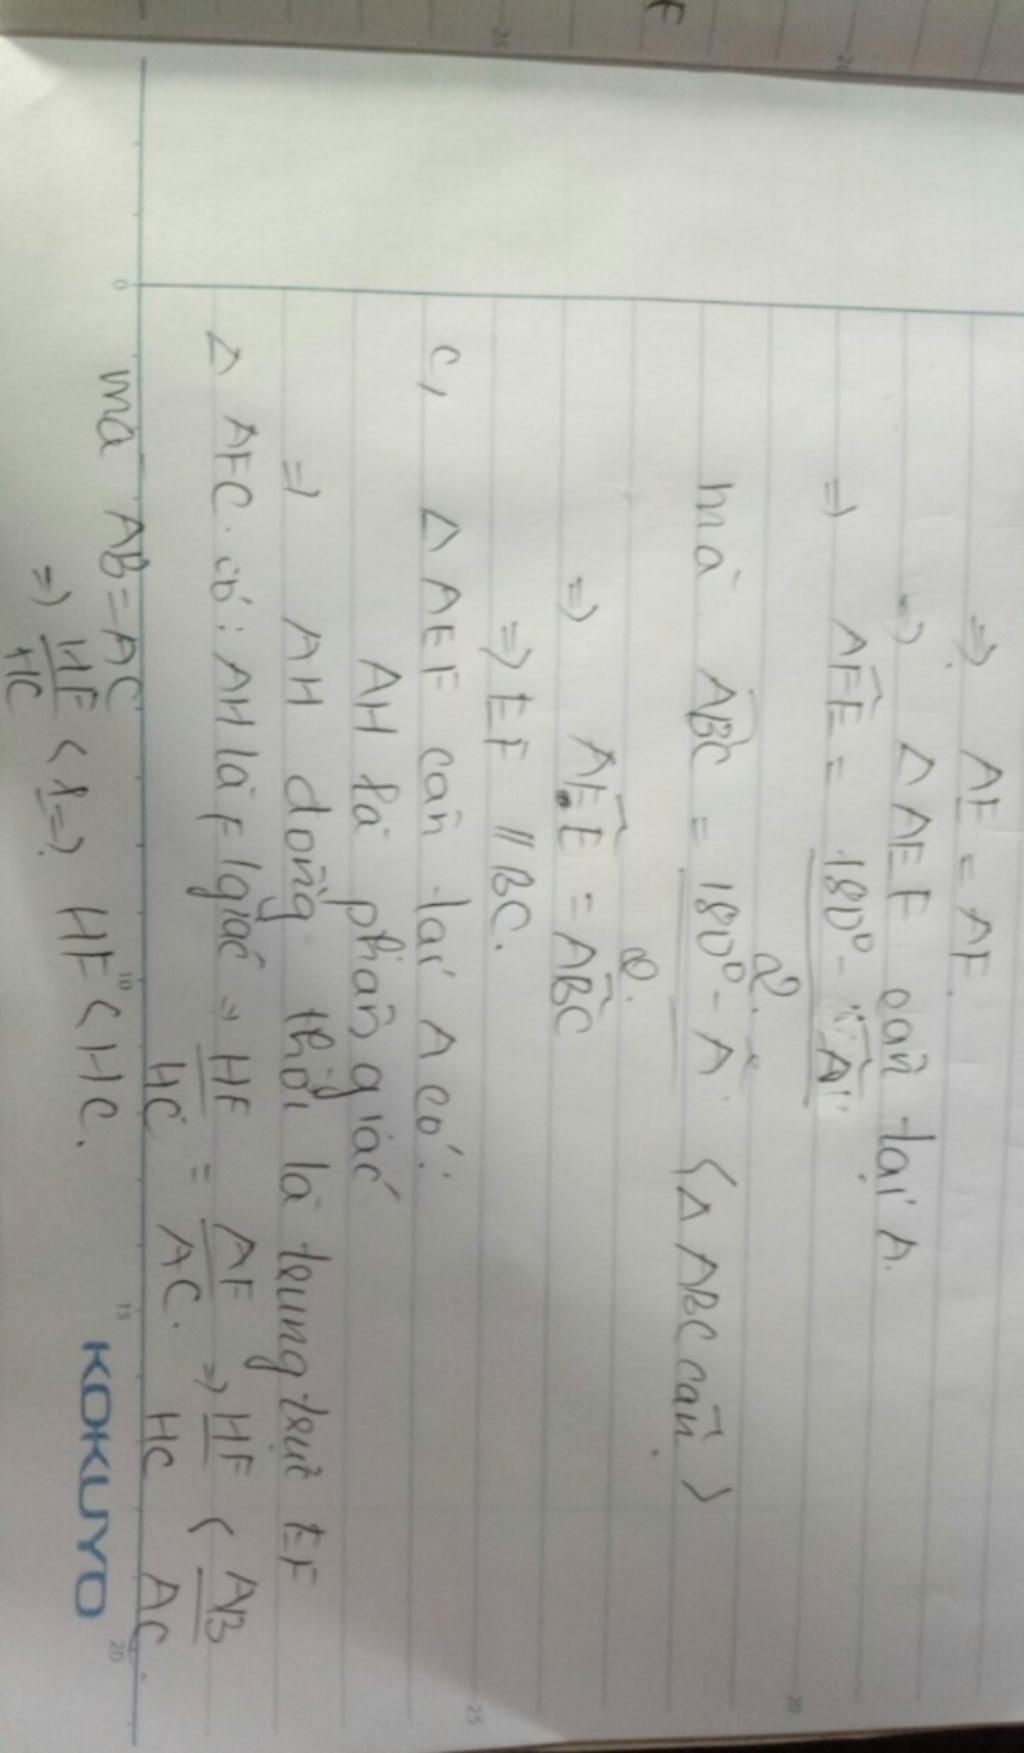 => AE = AF.
=> Δ AEF cân tại A.
=> AFE = 180° - A
2
mà ABC = 180° - A (Δ ABC cân)
2.
=> AFE = ABC
=> EF // BC.
c, Δ AEF cân tại A có:
AH là phân giác
=> AH đồng thời là trung trực EF
Δ AFC có: AH là f/giác => HF/HC = AF/AC. => HF/HC < AB/AC.
mà AB = AC
=> HF/HC < 1 => HF < HC.
KOKUYO
0 10 15 20
25
20